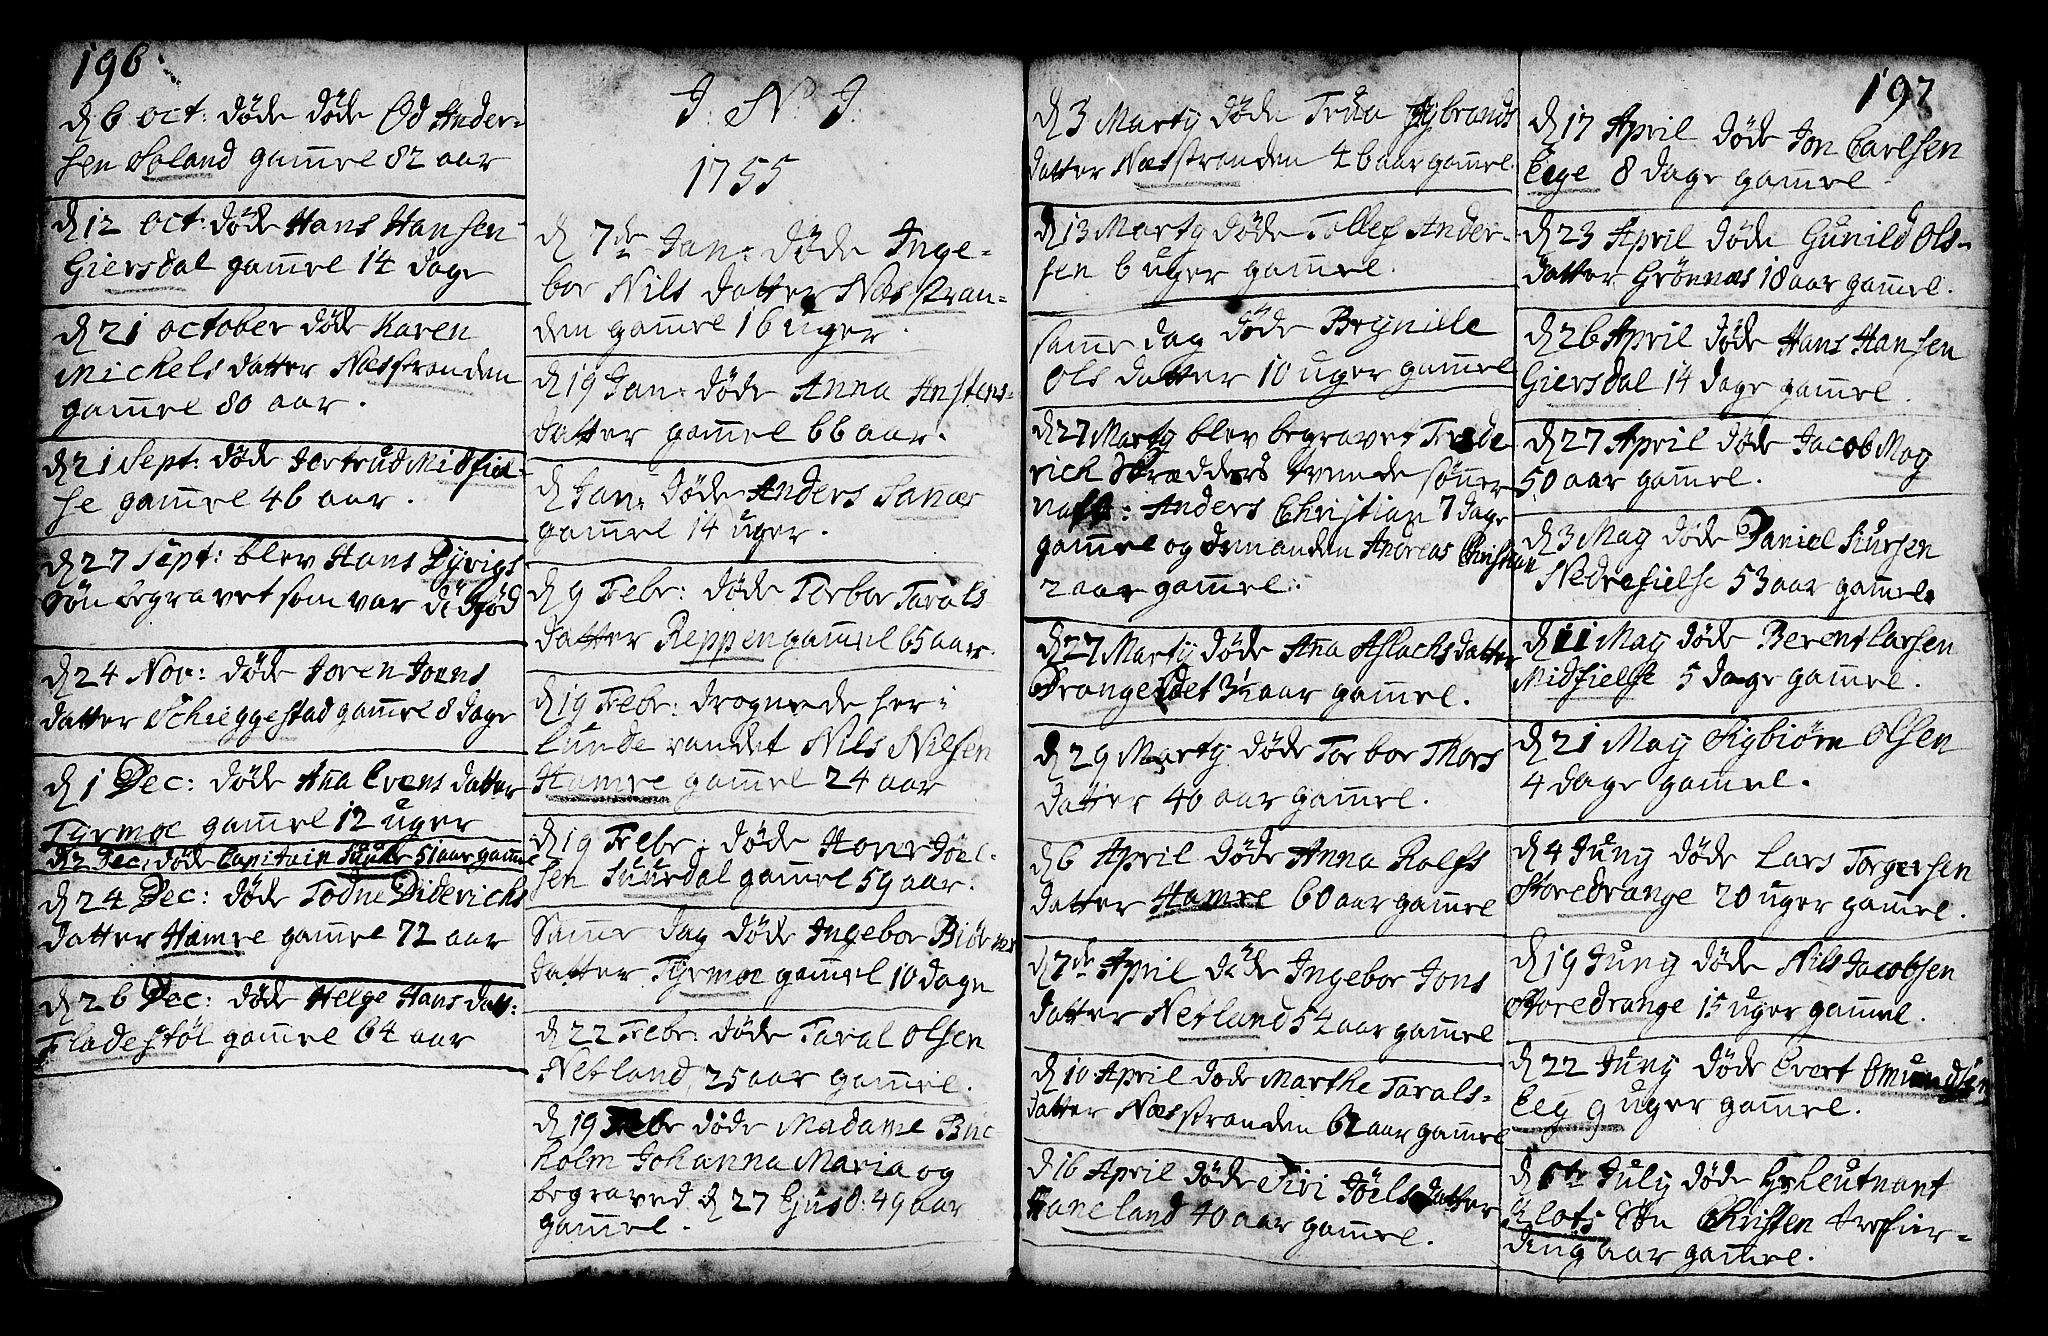 196
d 6 oct: døde døde Od Ander-
sen Søland gam̄el 82 aar
d 12 oct: døde Hans Hansen
Giersdal gam̄el 14 dage
d 21 october døde Karen
Michels datter Næsstranden
gam̄el 80 aar.
d 21 Sept: døde Jertrud Midfiel-
se gam̄el 46 aar.
d 27 Sept: blev Hans Dyvigs
Søn begravet som var dødfød
d 24 Nov: døde Joren Joens
datter Schieggestad gam̄el 8 dage
d 1 Dec: døde Aña Evens datter
Tyrmoe gam̄el 12 uger
d 2 Dec: døde Capitain 51 aar gam̄el
d 24 Dec: døde Todne Diderichs
datter Hamre gam̄el 72 aar
d 26 Dec: døde Helge Hans datt:
Fladestøl gam̄el 64 aar
J: N: J:
1755
d 7de Jan: døde Inge-
bor Nils datter Næsstran-
den gam̄el 16 uger.
d 19 Jan: døde Anna Anstens-
datter gam̄el 66 aar.
d Jan: døde Anders Sanæs
gam̄el 14 uger.
d 9 Febr: døde Torbor Tarals
datter Reppen gam̄el 65 aar.
d 19 Febr: drognede her i
Lunde vandet Nils Nilsen
Hamre gam̄el 24 aar
d 19 Febr: døde Hover Joel-
sen Suurdal gam̄el 59 aar.
Sam̄e dag døde Ingebor Biørns
datter Tyrmoe gam̄el 10 dage
d 22 Febr: døde Taral Olsen
Netland, 25 aar gam̄el.
d 19 Febr døde Madame Buc
holm Johanna Maria og
begraved d 27 Ejusd: 49 aar
gam̄el.
d 3 Martij døde Trua Sybrands
datter Næsstranden 46 aar gam̄el.
d 13 Martij døde Tollef Ander-
sen 6 uger gam̄el.
sam̄e dag døde Brynille
Ols datter 10 uger gam̄el
d 27 Martij blev begravet Frede
rich Skrædders tvende sønner
nafl: Anders Christian 7 dage
gam̄el og dend anden Andreas Christian
2 aar gam̄el.
d 27 Martij døde Aña Aslachs datter
Drangeslet 3½ aar gam̄el.
d 29 Martij døde Torbor Thors
datter 40 aar gam̄el.
d 6 April døde Anna Rolfs
datter Hamre 60 aar gam̄el
d 7de April døde Ingebor Jons
datter Netland 54 aar gam̄el
d 10 April døde Marthe Tarals-
datter Næsstranden 62 aar gam̄el
d 16 April døde Siri Joels datter
Haneland 40 aar gam̄el.
197
d 17 April døde Jon Carlsen
Eege 8 dage gam̄el
d 23 April døde Gunild Ols-
datter Grønnæs 18 aar gam̄el.
d 26 April døde Hans Hansen
Giersdal 14 dage gam̄el.
d 27 April døde Jacob Moy
50 aar gam̄el.
d 3 May døde Daniel Siursen
Nedrefielse 53 aar gam̄el.
d 11 May døde Berent Larsen
Midfielse 5 dage gam̄el.
d 21 May Sigbiørn Olsen
4 dage gam̄el.
d 4 Juny døde Lars Torgersen
Storedrange 20 uger gam̄el.
d 19 Juny døde Nils Jacobsen
Storedrange 15 uger gam̄el.
d 22 Juny døde Evert Omundsen
Eeg 9 uger gam̄el.
d 1ste July døde Hr Leutnant
Klots Søn Christen tresier-
ding aar gam̄el.